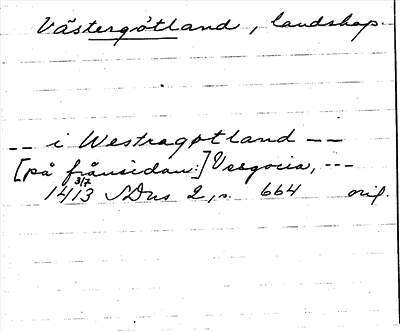 Västergötland, landskap.
-- i Westragøtland --
[på frånsidan:] Vesgocia, ---
14 3/7 13 SDns 2, s. 664 orig.